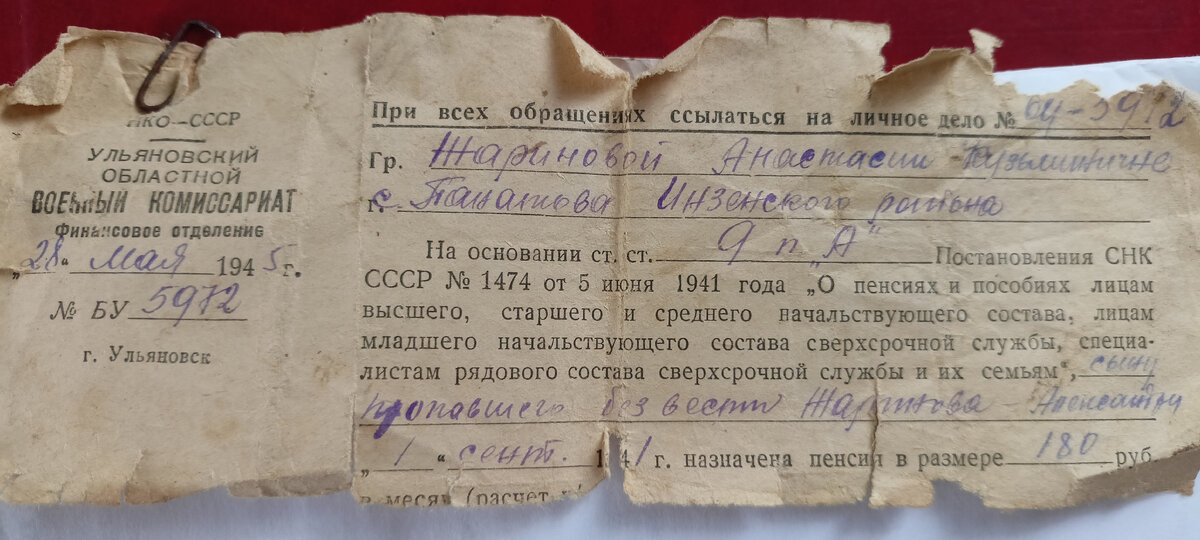 НКО—СССР
УЛЬЯНОВСКИЙ
ОБЛАСТНОЙ
ВОЕННЫЙ КОМИССАРИАТ
Финансовое отделение
„28“ мая 1945 г.
№ БУ 5972
г. Ульяновск
При всех обращениях ссылаться на личное дело № 04-5972
Гр. Жариновой Анастасии Кузьминичне
г. с. Панатова Инзенского района
На основании ст. ст. 9 п „А“ Постановления СНК
СССР № 1474 от 5 июня 1941 года „О пенсиях и пособиях лицам
высшего, старшего и среднего начальствующего состава, лицам
младшего начальствующего состава сверхсрочной службы, специа-
листам рядового состава сверхсрочной службы и их семьям“, сыну
пропавшего без вести Жаринова Александру
„1“ сент. 1941 г. назначена пенсия в размере 180 руб.
в месяц (расчет